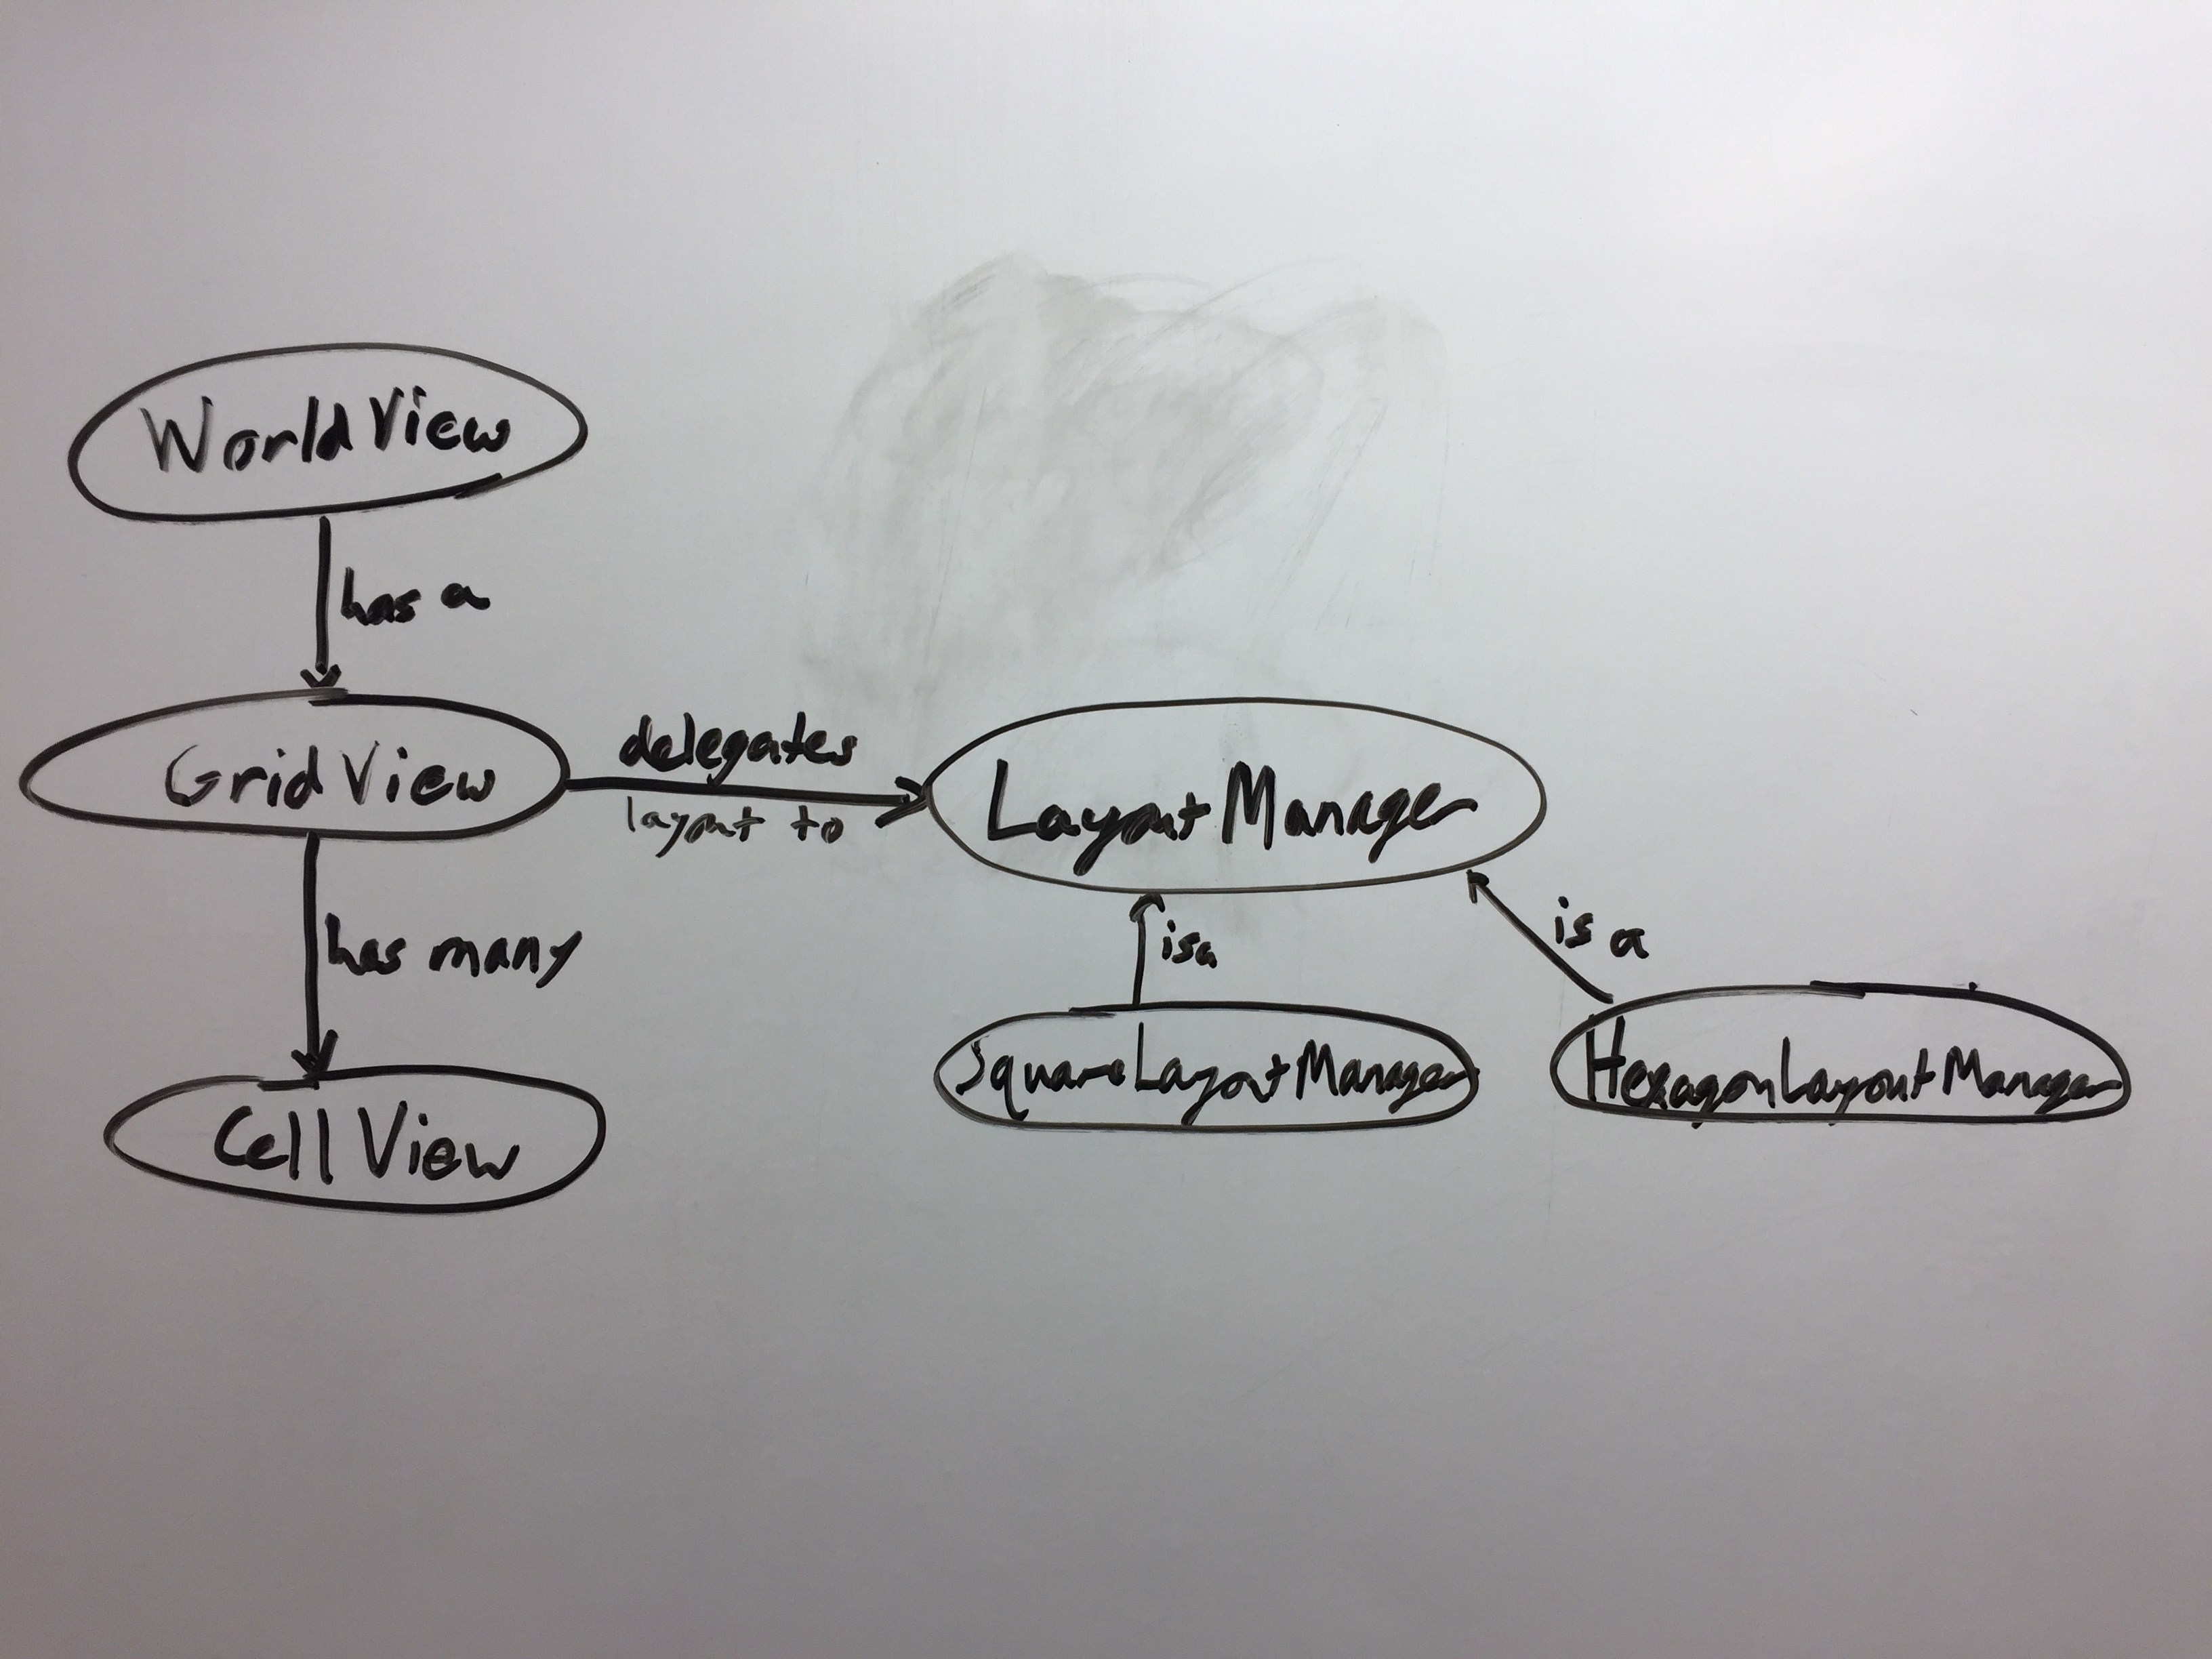 WorldView
has a
GridView
delegates
layout to
LayoutManager
has many
isa
is a
CellView
SquareLayoutManager
HexagonLayoutManager